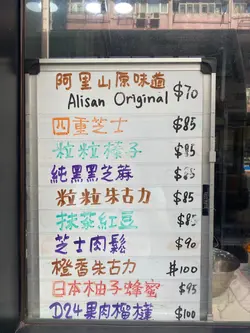 阿里山原味道 $70
Alisan Original
四重芝士 $85
粒粒榛子 $95
純黑黑芝麻 $85
粒粒朱古力 $85
抹茶紅豆 $85
芝士肉鬆 $90
橙香朱古力 $100
日本柚子蜂蜜 $95
D24果肉榴槤 $100